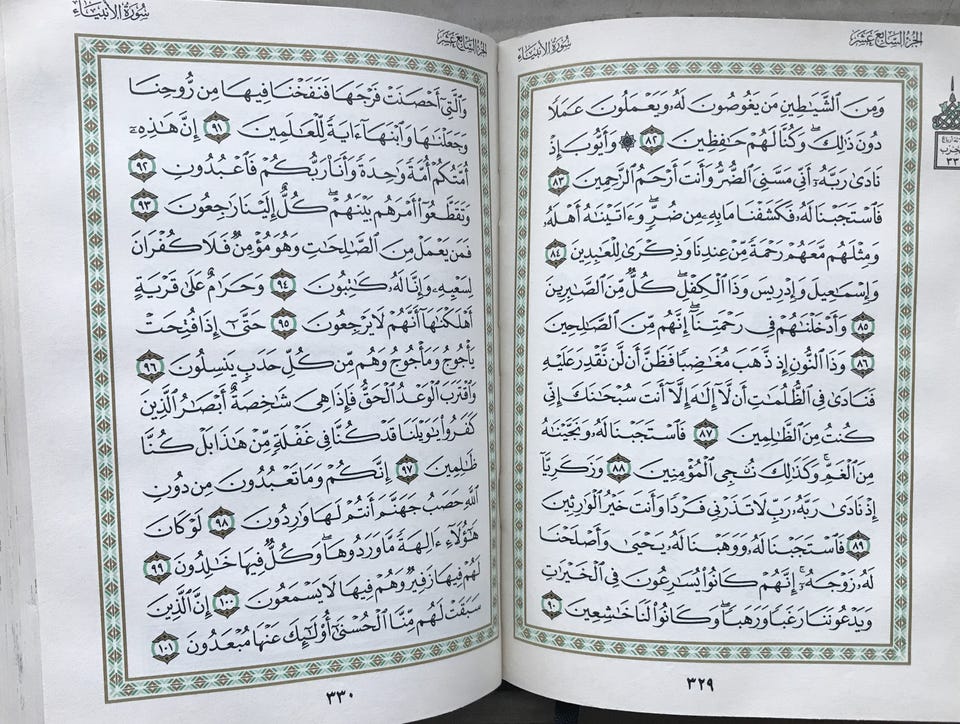 الجزء السابع عشر
سورة الأنبياء
وَمِنَ الشَّيَٰطِينِ مَن يَغُوصُونَ لَهُۥ وَيَعْمَلُونَ عَمَلًا
دُونَ ذَٰلِكَ ۖ وَكُنَّا لَهُمْ حَٰفِظِينَ ٨٢ ۞ وَأَيُّوبَ إِذْ
نَادَىٰ رَبَّهُۥٓ أَنِّى مَسَّنِىَ الضُّرُّ وَأَنتَ أَرْحَمُ الرَّٰحِمِينَ ٨٣
فَاسْتَجَبْنَا لَهُۥ فَكَشَفْنَا مَا بِهِۦ مِن ضُرٍّ ۖ وَءَاتَيْنَٰهُ أَهْلَهُۥ
وَمِثْلَهُم مَّعَهُمْ رَحْمَةً مِّنْ عِندِنَا وَذِكْرَىٰ لِلْعَٰبِدِينَ ٨٤
وَإِسْمَٰعِيلَ وَإِدْرِيسَ وَذَا الْكِفْلِ ۖ كُلٌّ مِّنَ الصَّٰبِرِينَ
٨٥ وَأَدْخَلْنَٰهُمْ فِى رَحْمَتِنَآ ۖ إِنَّهُم مِّنَ الصَّٰلِحِينَ
٨٦ وَذَا النُّونِ إِذ ذَّهَبَ مُغَٰضِبًا فَظَنَّ أَن لَّن نَّقْدِرَ عَلَيْهِ
فَنَادَىٰ فِى الظُّلُمَٰتِ أَن لَّآ إِلَٰهَ إِلَّآ أَنتَ سُبْحَٰنَكَ إِنِّى
كُنتُ مِنَ الظَّٰلِمِينَ ٨٧ فَاسْتَجَبْنَا لَهُۥ وَنَجَّيْنَٰهُ
مِنَ الْغَمِّ ۚ وَكَذَٰلِكَ نُۨجِى الْمُؤْمِنِينَ ٨٨ وَزَكَرِيَّآ
إِذْ نَادَىٰ رَبَّهُۥ رَبِّ لَا تَذَرْنِى فَرْدًا وَأَنتَ خَيْرُ الْوَٰرِثِينَ
٨٩ فَاسْتَجَبْنَا لَهُۥ وَوَهَبْنَا لَهُۥ يَحْيَىٰ وَأَصْلَحْنَا
لَهُۥ زَوْجَهُۥٓ ۚ إِنَّهُمْ كَانُوا۟ يُسَٰرِعُونَ فِى الْخَيْرَٰتِ
وَيَدْعُونَنَا رَغَبًا وَرَهَبًا ۖ وَكَانُوا۟ لَنَا خَٰشِعِينَ ٩٠
٣٢٩
الجزء السابع عشر
سورة الأنبياء
وَالَّتِىٓ أَحْصَنَتْ فَرْجَهَا فَنَفَخْنَا فِيهَا مِن رُّوحِنَا
وَجَعَلْنَٰهَا وَابْنَهَآ ءَايَةً لِّلْعَٰلَمِينَ ٩١ إِنَّ هَٰذِهِۦٓ
أُمَّتُكُمْ أُمَّةً وَٰحِدَةً وَأَنَا۠ رَبُّكُمْ فَاعْبُدُونِ ٩٢
وَتَقَطَّعُوٓا۟ أَمْرَهُم بَيْنَهُمْ ۖ كُلٌّ إِلَيْنَا رَٰجِعُونَ ٩٣
فَمَن يَعْمَلْ مِنَ الصَّٰلِحَٰتِ وَهُوَ مُؤْمِنٌ فَلَا كُفْرَانَ
لِسَعْيِهِۦ وَإِنَّا لَهُۥ كَٰتِبُونَ ٩٤ وَحَرَٰمٌ عَلَىٰ قَرْيَةٍ
أَهْلَكْنَٰهَآ أَنَّهُمْ لَا يَرْجِعُونَ ٩٥ حَتَّىٰٓ إِذَا فُتِحَتْ
يَأْجُوجُ وَمَأْجُوجُ وَهُم مِّن كُلِّ حَدَبٍ يَنسِلُونَ ٩٦
وَاقْتَرَبَ الْوَعْدُ الْحَقُّ فَإِذَا هِىَ شَٰخِصَةٌ أَبْصَٰرُ الَّذِينَ
كَفَرُوا۟ يَٰوَيْلَنَا قَدْ كُنَّا فِى غَفْلَةٍ مِّنْ هَٰذَا بَلْ كُنَّا
ظَٰلِمِينَ ٩٧ إِنَّكُمْ وَمَا تَعْبُدُونَ مِن دُونِ
اللَّهِ حَصَبُ جَهَنَّمَ أَنتُمْ لَهَا وَٰرِدُونَ ٩٨ لَوْ كَانَ
هَٰٓؤُلَآءِ ءَالِهَةً مَّا وَرَدُوهَا ۖ وَكُلٌّ فِيهَا خَٰلِدُونَ ٩٩
لَهُمْ فِيهَا زَفِيرٌ وَهُمْ فِيهَا لَا يَسْمَعُونَ ١٠٠ إِنَّ الَّذِينَ
سَبَقَتْ لَهُم مِّنَّا الْحُسْنَىٰٓ أُو۟لَٰٓئِكَ عَنْهَا مُبْعَدُونَ ١٠١
٣٣٠